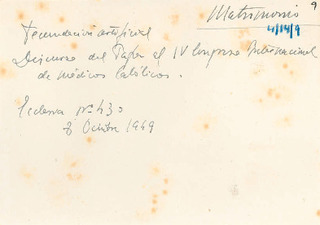 Matrimonio 9
4/14/9
Fecundación artificial
Discurso del Papa al IV Congreso Internacional
de médicos Católicos.
Ecclesia nº 430
8 Octubre 1949